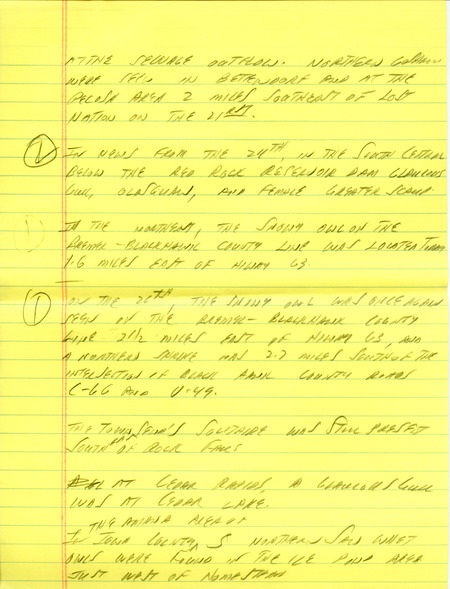 AT THE SEWAGE OUTFLOW. NORTHERN GOSHAWK
WERE SEEN IN BETTENDORF AND AT THE
AREA 2 MILES SOUTHEAST OF LOST
NATION ON THE 21ST.
2 IN NEWS FROM THE 24TH, IN THE SOUTH CENTRAL
BELOW THE RED ROCK RESERVOIR DAM GLAUCOUS
GULL, OLDSQUAW, AND FEMALE GREATER SCAUP
1 IN THE NORTHEAST, THE SNOWY OWL ON THE
BREMER-BLACKHAWK COUNTY LINE WAS LOCATED TODAY
1.6 MILES EAST OF HIWAY 63.
1 ON THE 26TH, THE SNOWY OWL WAS ONCE AGAIN
SEEN ON THE BREMER-BLACKHAWK COUNTY
LINE 2 1/2 MILES EAST OF HIWAY 63, AND
A NORTHERN SHRIKE WAS 2.7 MILES SOUTH OF THE
INTERSECTION OF BLACK HAWK COUNTY ROADS
C-66 AND V-49.
THE TOWNSEND'S SOLITAIRE WAS STILL PRESENT
SOUTH OF ROCK FALLS
AT CEDAR RAPIDS, A GLAUCOUS GULL
WAS AT CEDAR LAKE.
THE AMANA AREA OF
IN IOWA COUNTY, 5 NORTHERN SAW WHET
OWLS WERE FOUND IN THE AREA
JUST WEST OF HOMESTEAD